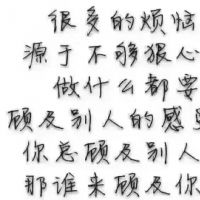 很多的烦恼
源于不够狠心
做什么都要
顾及别人的感受
你总顾及别人
那谁来顾及你